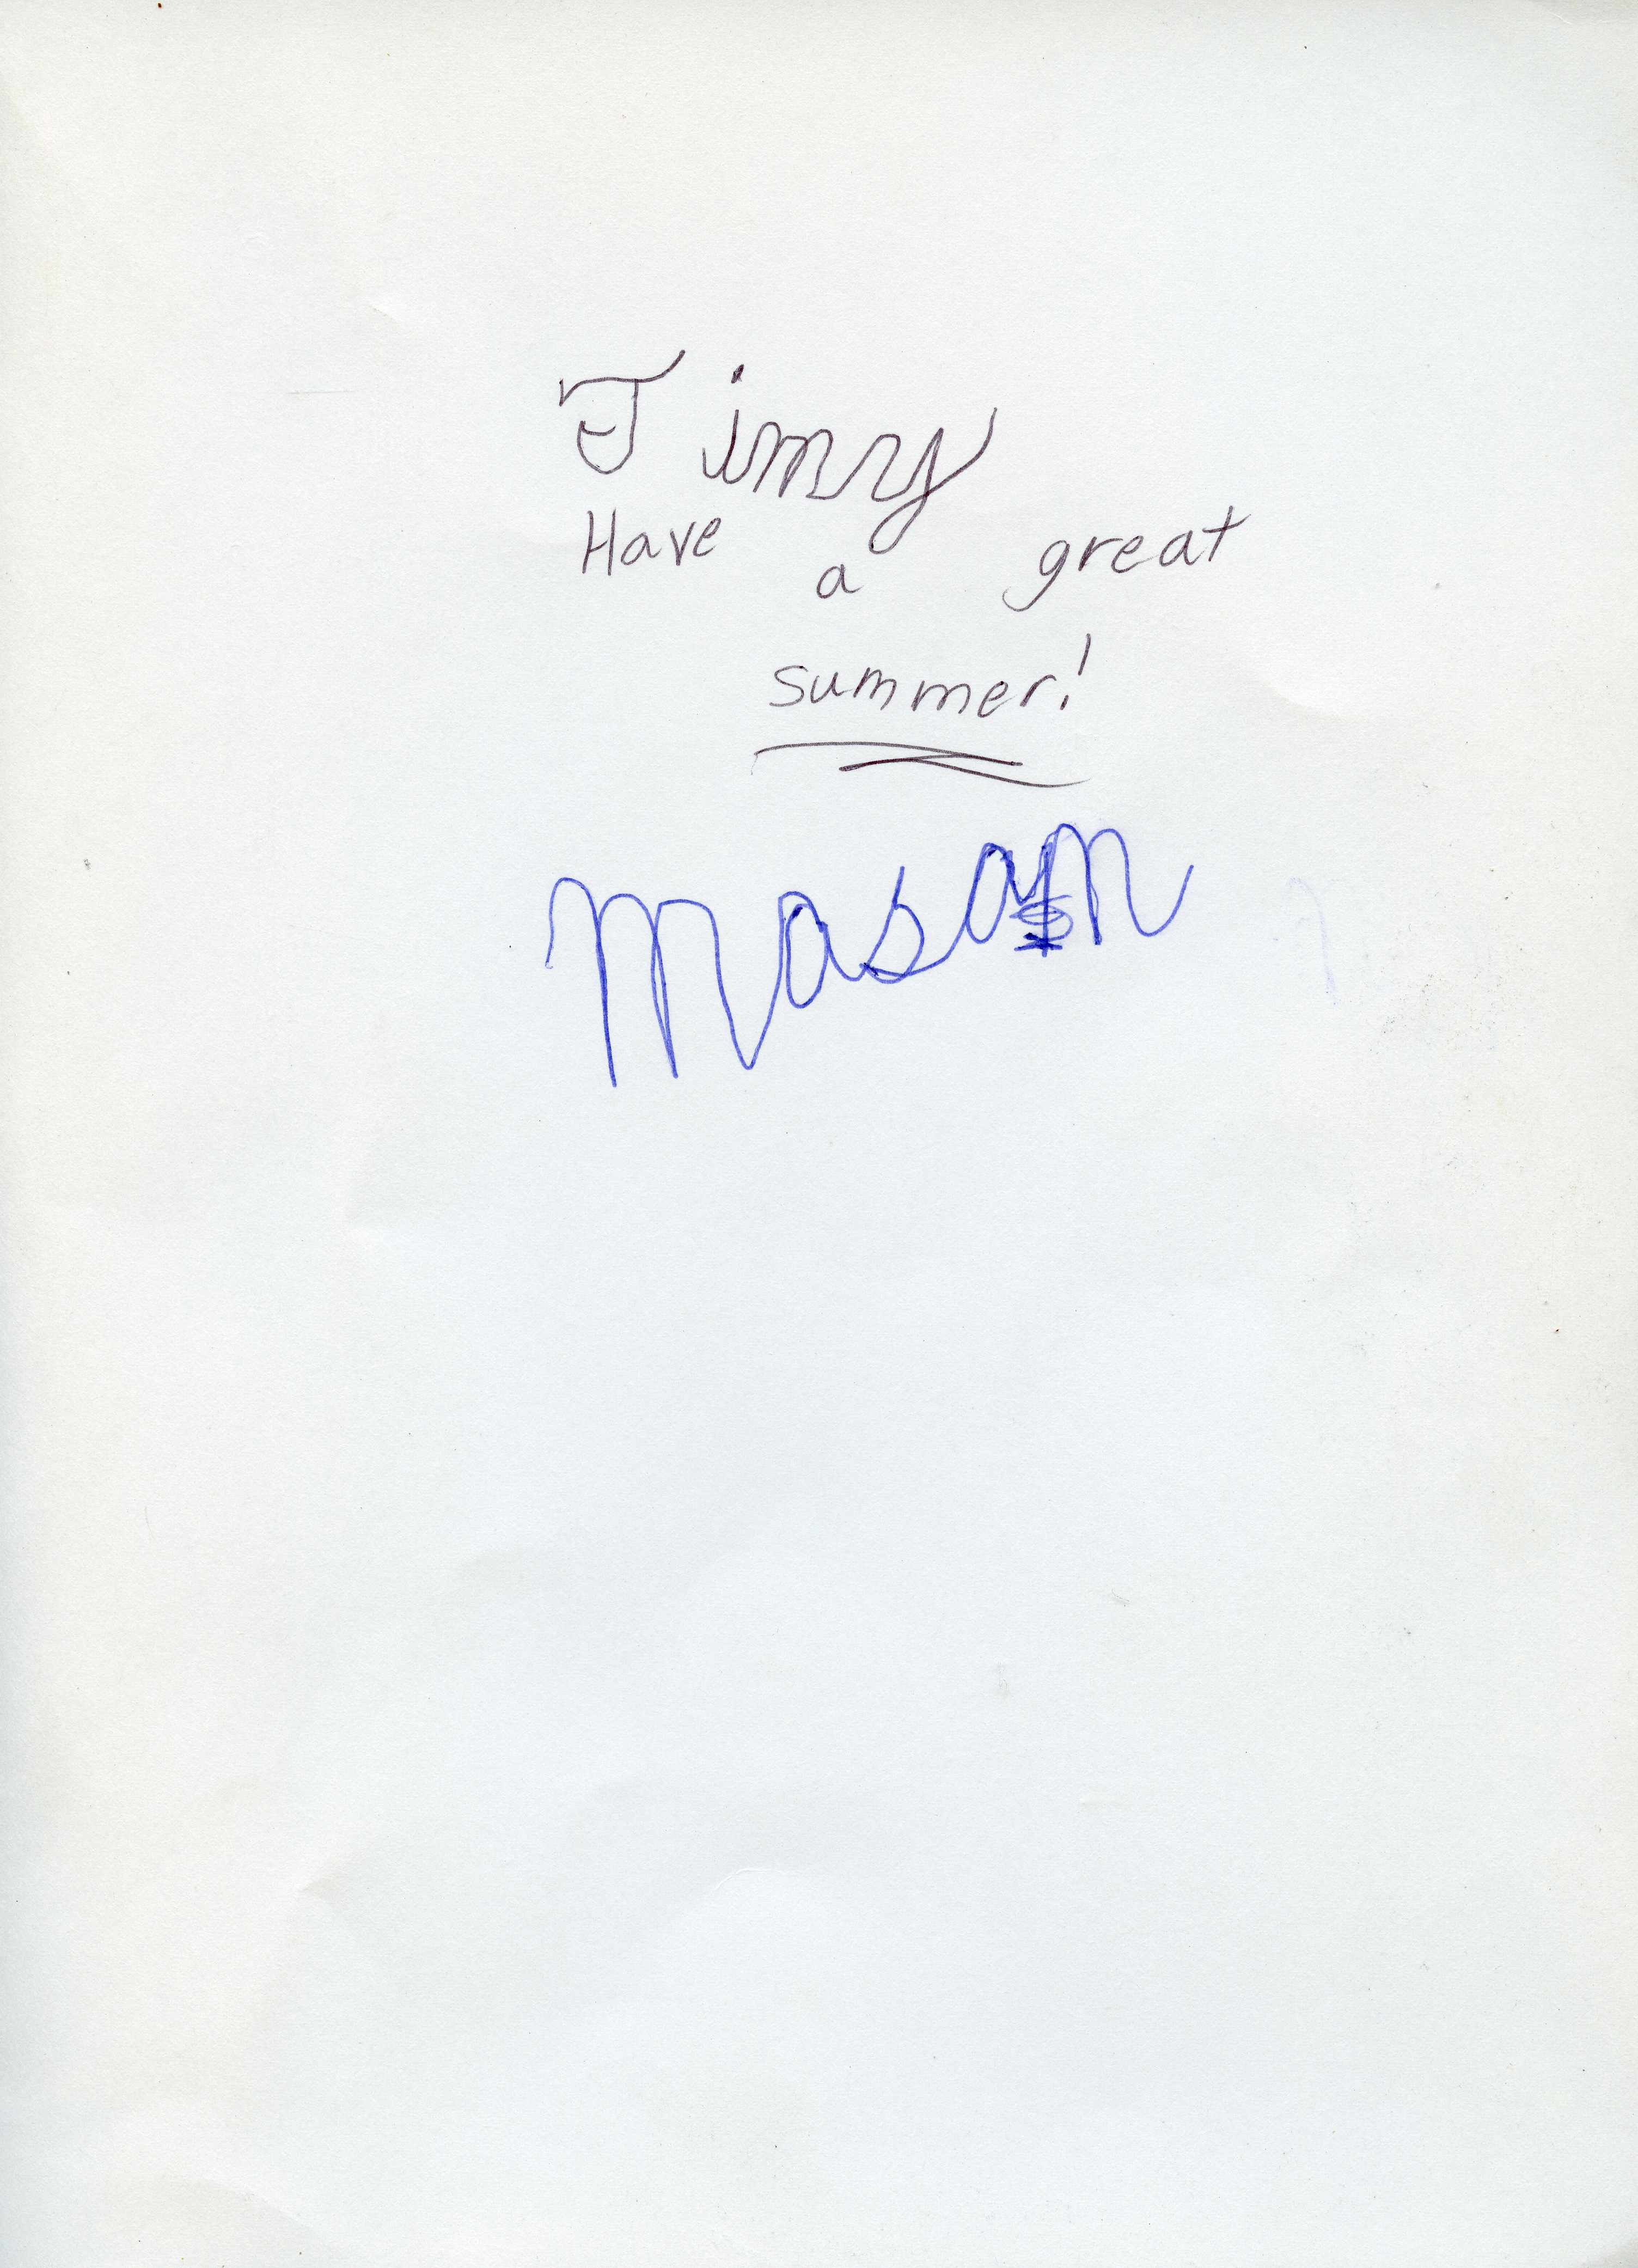 Timy
Have a great
summer!
Mason